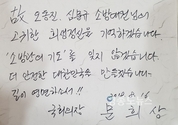 故 오동진, 심문규 소방대원님의
고귀한 희생정신을 기억하겠습니다.
'소방관의 기도'를 잊지 않겠습니다.
더 안전한 대한민국을 만들겠습니다.
길이 영면하소서!!
2018. 8. 16
국회의장 문희상